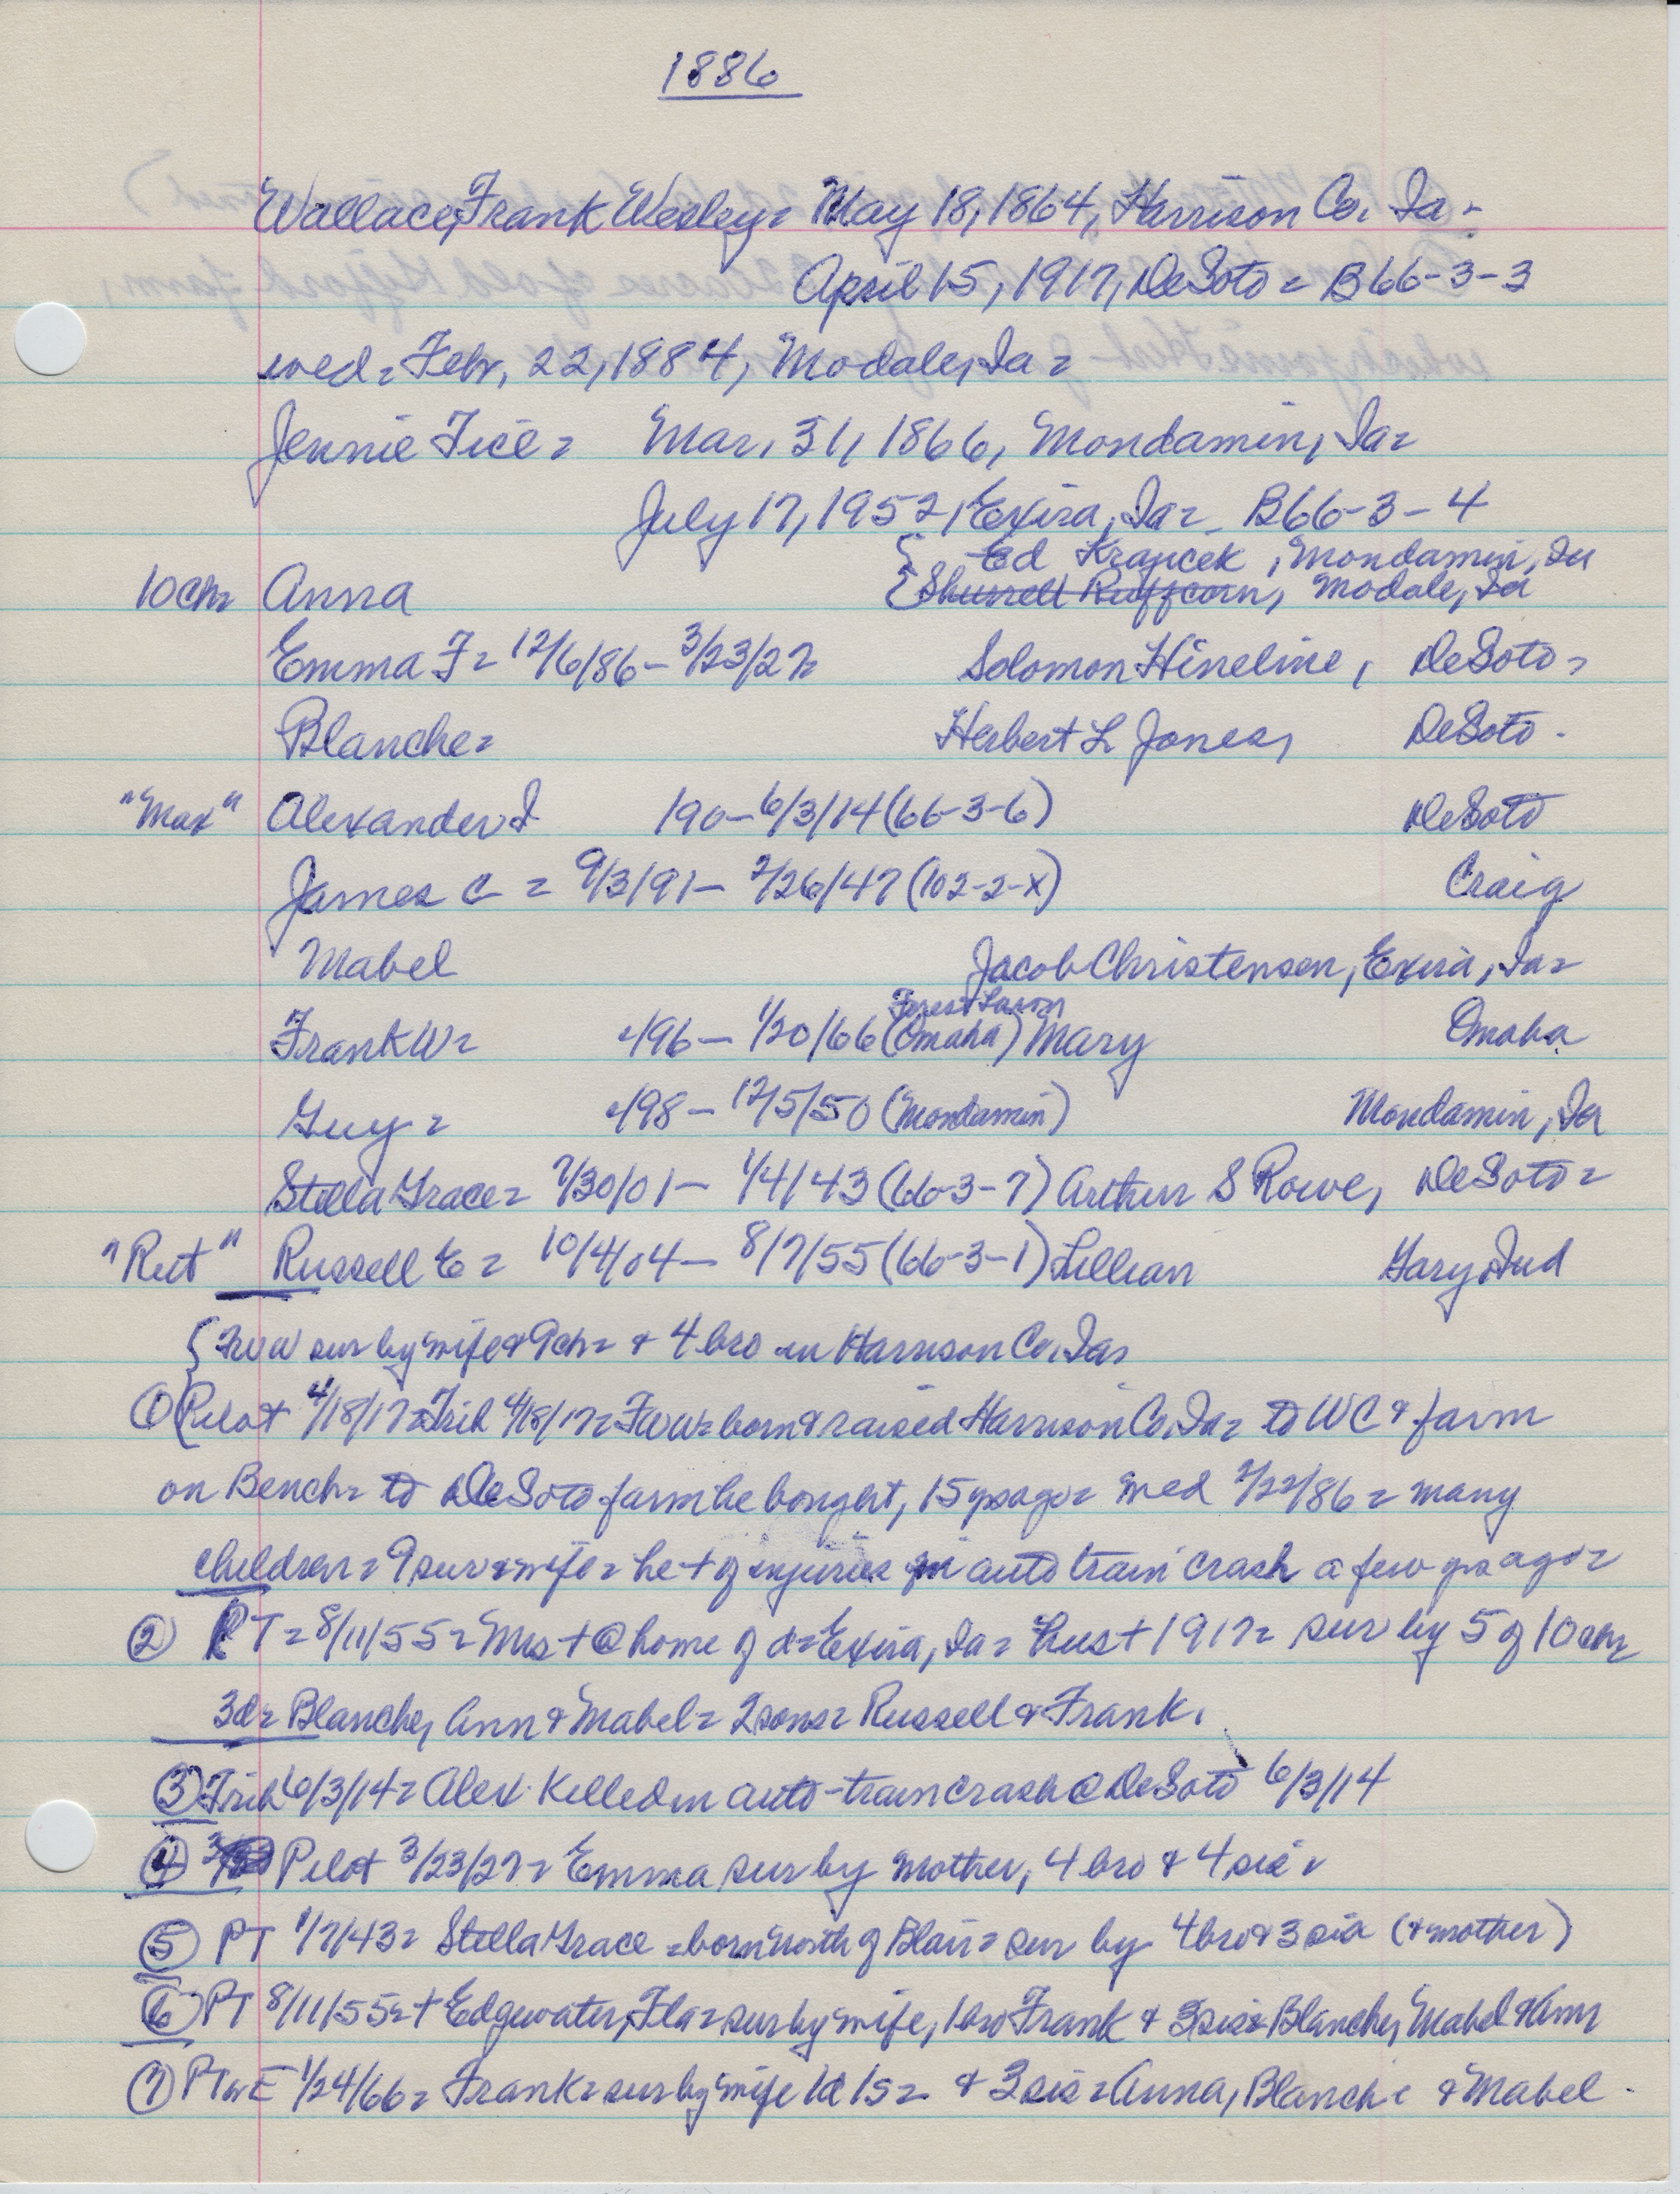 1886
Wallace, Frank Wesley = May 18, 1864, Harrison Co. Ia -
April 15, 1917, DeSoto = B66-3-3
wed = Febr. 22, 1884, Modale, Ia =
Jennie Fice = Mar. 31, 1866, Mondamin, Ia =
July 17, 1952, Exira, Ia = B66-3-4
{ Ed Krajicek, Mondamin, Ia
10 ch = Anna { Shurrell Ruffcorn, Modale, Ia
Emma F = 12/6/86 - 3/23/27 = Solomon Hineline, DeSoto =
Blanche = Herbert L Jones, DeSoto -
"Max" Alexander I 190 - 6/3/14 (66-3-6) DeSoto
James C = 9/3/91 - 2/26/47 (102-2-X) Craig
Mabel Jacob Christensen, Exira, Ia =
Forest Lawn
Frank W = 496 - 1/20/66 (Omaha) Mary Omaha
Guy = 498 - 12/5/50 (Mondamin) Mondamin, Ia
Stella Grace = 7/30/01 - 1/4/43 (66-3-7) Arthur S Rowe, DeSoto =
"Rut" Russell E = 10/4/04 - 8/7/55 (66-3-1) Lillian Gary, Ind
{ FWW sur by wife & 9 ch = & 4 bro in Harrison Co. Ia =
① Pilot 4/18/17 = Trib 4/18/17 = FWW = born & raised Harrison Co. Ia = to WC & farm
on Bench = to DeSoto farm he bought, 15 yrs ago = wed 2/22/86 = many
children = 9 sur & wife = he + of injuries in auto train crash a few yrs ago =
② PT = 8/11/55 = Mrs + @ home of d = Exira, Ia = hus + 1917 = sur by 5 of 10 ch =
3 d = Blanche, Ann & Mabel = 2 sons = Russell & Frank.
③ Trib 6/3/14 = Alex Killed in auto-train crash @ DeSoto 6/3/14
④ Pilot 3/23/27 = Emma sur by mother, 4 bro & 4 sis =
⑤ PT 1/7/43 = Stella Grace = born north of Blair = sur by 4 bro & 3 sis (& mother)
⑥ PT 8/11/55 = + Edgewater, Fla = sur by wife, 1 bro Frank & 3 sis = Blanche, Mabel & Ann
⑦ PT & E 1/24/66 = Frank = sur by wife 1d 1s = & 3 sis = Anna, Blanche & Mabel -